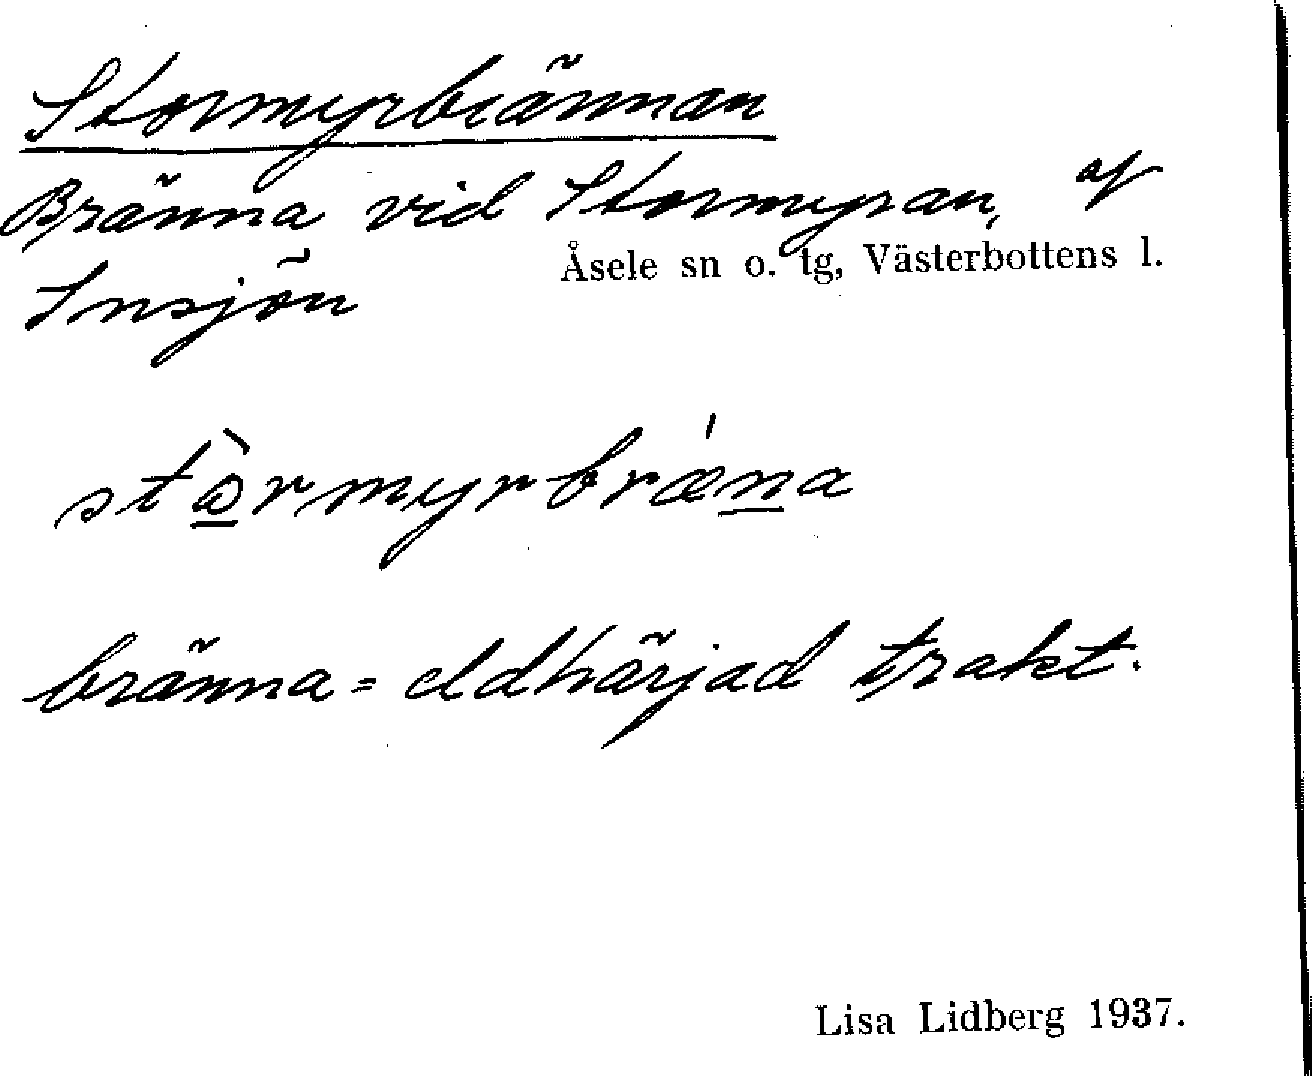 Stormyrbrännan
Bränna vid Stormyran, af
Åsele sn o. tg, Västerbottens l.
Insjön
stòrmyrbræ´na
bränna = eldhärjad trakt.
Lisa Lidberg 1937.